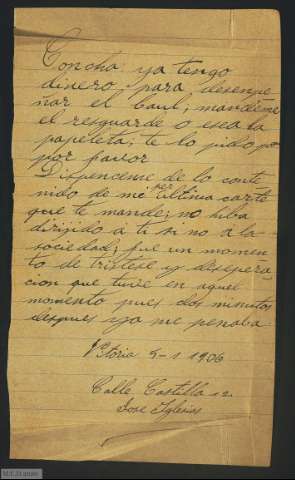 Concha: ya tengo
dinero para desempe
ñar el baul; mandeme
el resguarde o esea la
papeleta; te lo pido po
por favor
Dispenseme de lo conte
nido de mi ultima carta
que te mande; no hiba
dirijido á ti si no á la
sociedad; fue un momen
to de tristese y desespera
cion que tuve en aquel
momento pues dos minutos
despues ya me penaba
Vitoria 5-1 1906
Calle Castilla 12.
Jose Iglesias